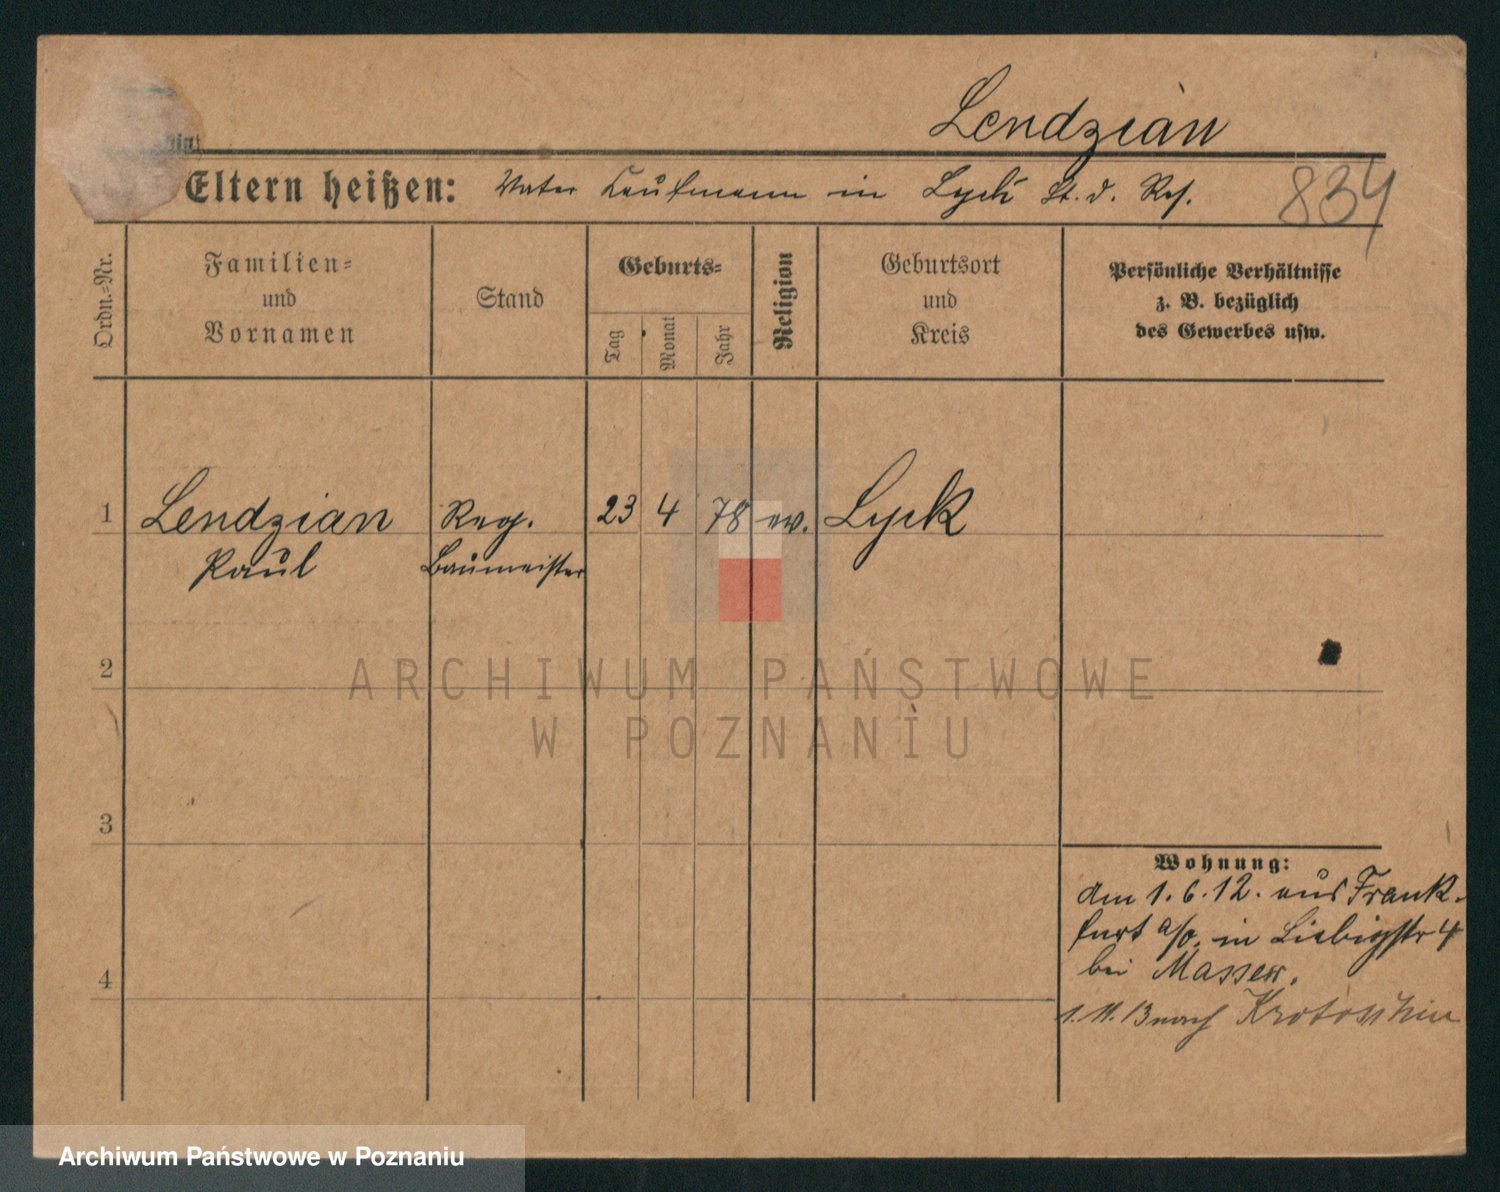 Lendzian
Eltern heißen: Vater Kaufmann in Lyck Lt. d. Res.
834
Ordn.=Nr.
Familien=
und
Vornamen
Stand
Geburts=
Tag
Monat
Jahr
Religion
Geburtsort
und
Kreis
Persönliche Verhältnisse
z. B. bezüglich
des Gewerbes usw.
1 Lendzian Reg. 23 4 78 ev. Lyck
Paul Baumeister
2
ARCHIWUM PAŃSTWOWE
W POZNANIU
3
Wohnung:
am 1.6.12. aus Frank-
furt a/o. in Liebigstr 4
bei
4
1.11.13 nach Krotoschin
Archiwum Państwowe w Poznaniu